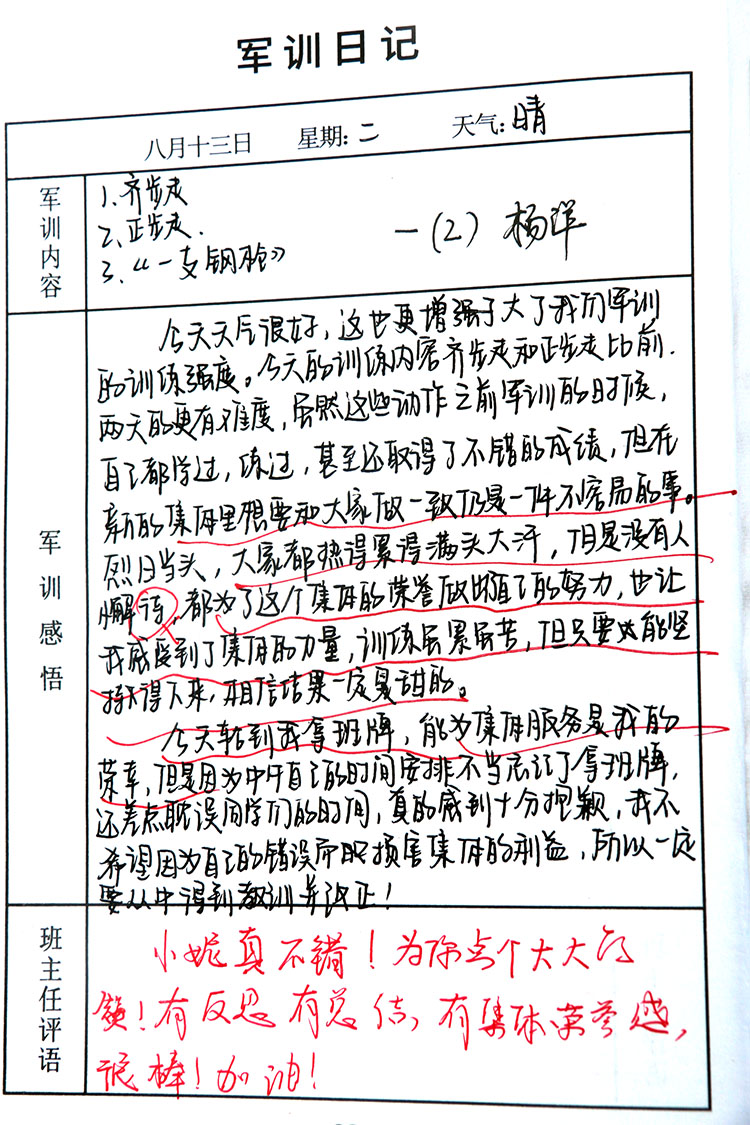 军训日记
八月十三日 星期:二 天气:晴
军训内容
1、齐步走
2、正步走.
3、“一支钢枪》
一(2) 杨洋
军训感悟
今天天气很好，这也更增强了大了我们军训
的训练强度。今天的训练内容齐步走和正步走比前
两天的更有难度，虽然这些动作之前军训的时候，
自己都学过，练过，甚至还取得了不错的成绩，但在
新的集体里想要和大家做一致仍是一件不容易的事。
烈日当头，大家都热得累得满头大汗，但是没有人
懈待，都为了这个集体的荣誉做出自己的努力，也让
我感受到了集体的力量，训练虽累虽苦，但只要能坚
持得下来，相信结果一定是甜的。
今天轮到我拿班牌，能为集体服务是我的
荣幸，但是因为中午自己的时间安排不当忘记了拿班牌，
还差点耽误同学们的时间，真的感到十分抱歉，我不
希望因为自己的错误而损害集体的利益，所以一定
要从中得到教训并改正！
班主任评语
小妮真不错！为你点个大大的
赞！有反思有总结，有集体荣誉感，
很棒！加油！